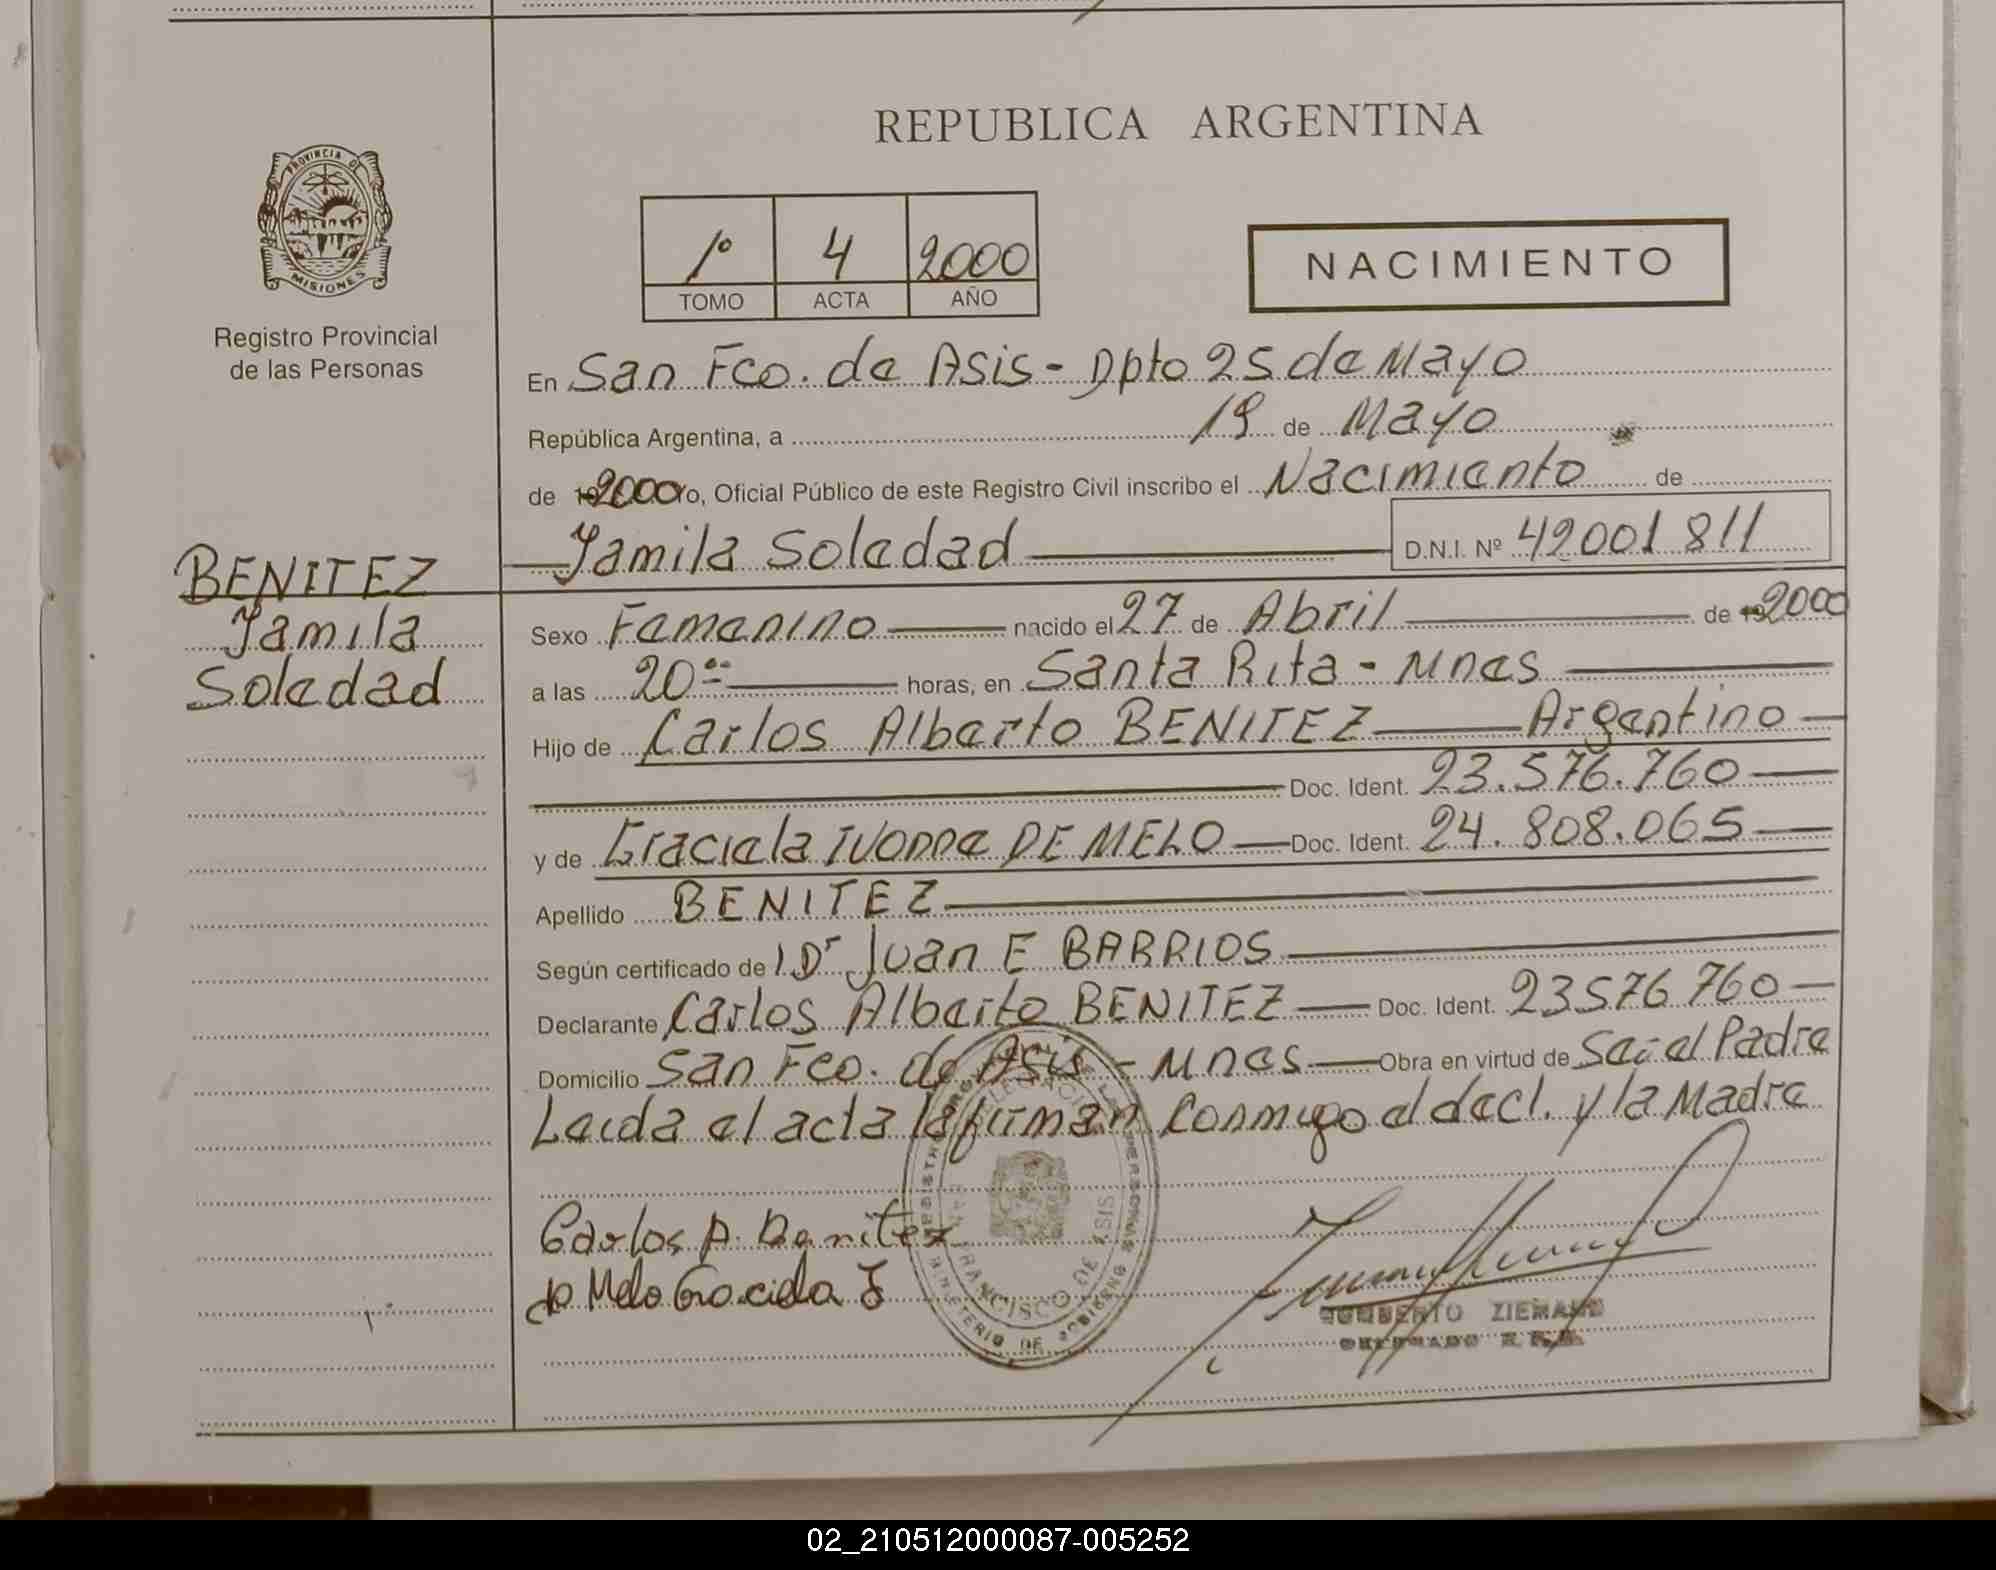 REPUBLICA ARGENTINA
PROVINCIA DE
MISIONES
Registro Provincial
de las Personas
1º 4 2000
TOMO ACTA AÑO
NACIMIENTO
En San Fco. de Asis - Dpto 25 de Mayo
República Argentina, a 19 de Mayo
de 2000 yo, Oficial Público de este Registro Civil inscribo el Nacimiento de
Yamila Soledad D.N.I. Nº 42001811
BENITEZ
Yamila
Soledad
Sexo Femenino nacido el 27 de Abril de 192000
a las 20 horas, en Santa Rita - Mnes
Hijo de Carlos Alberto BENITEZ Argentino
Doc. Ident. 23.576.760
y de Graciela Ivonne DE MELO Doc. Ident. 24.808.065
Apellido BENITEZ
Según certificado de Dr Juan E BARRIOS
Declarante Carlos Alberto BENITEZ Doc. Ident. 23576760
Domicilio San Fco. de Asis - Mnes Obra en virtud de Ser el Padre
Leida el acta la firman conmigo el decl. y la Madre
Carlos A. Benitez
de Melo Graciela I
SAN FRANCISCO DE ASIS
MINISTERIO DE GOBIERNO
ZIEMANN
02_210512000087-005252